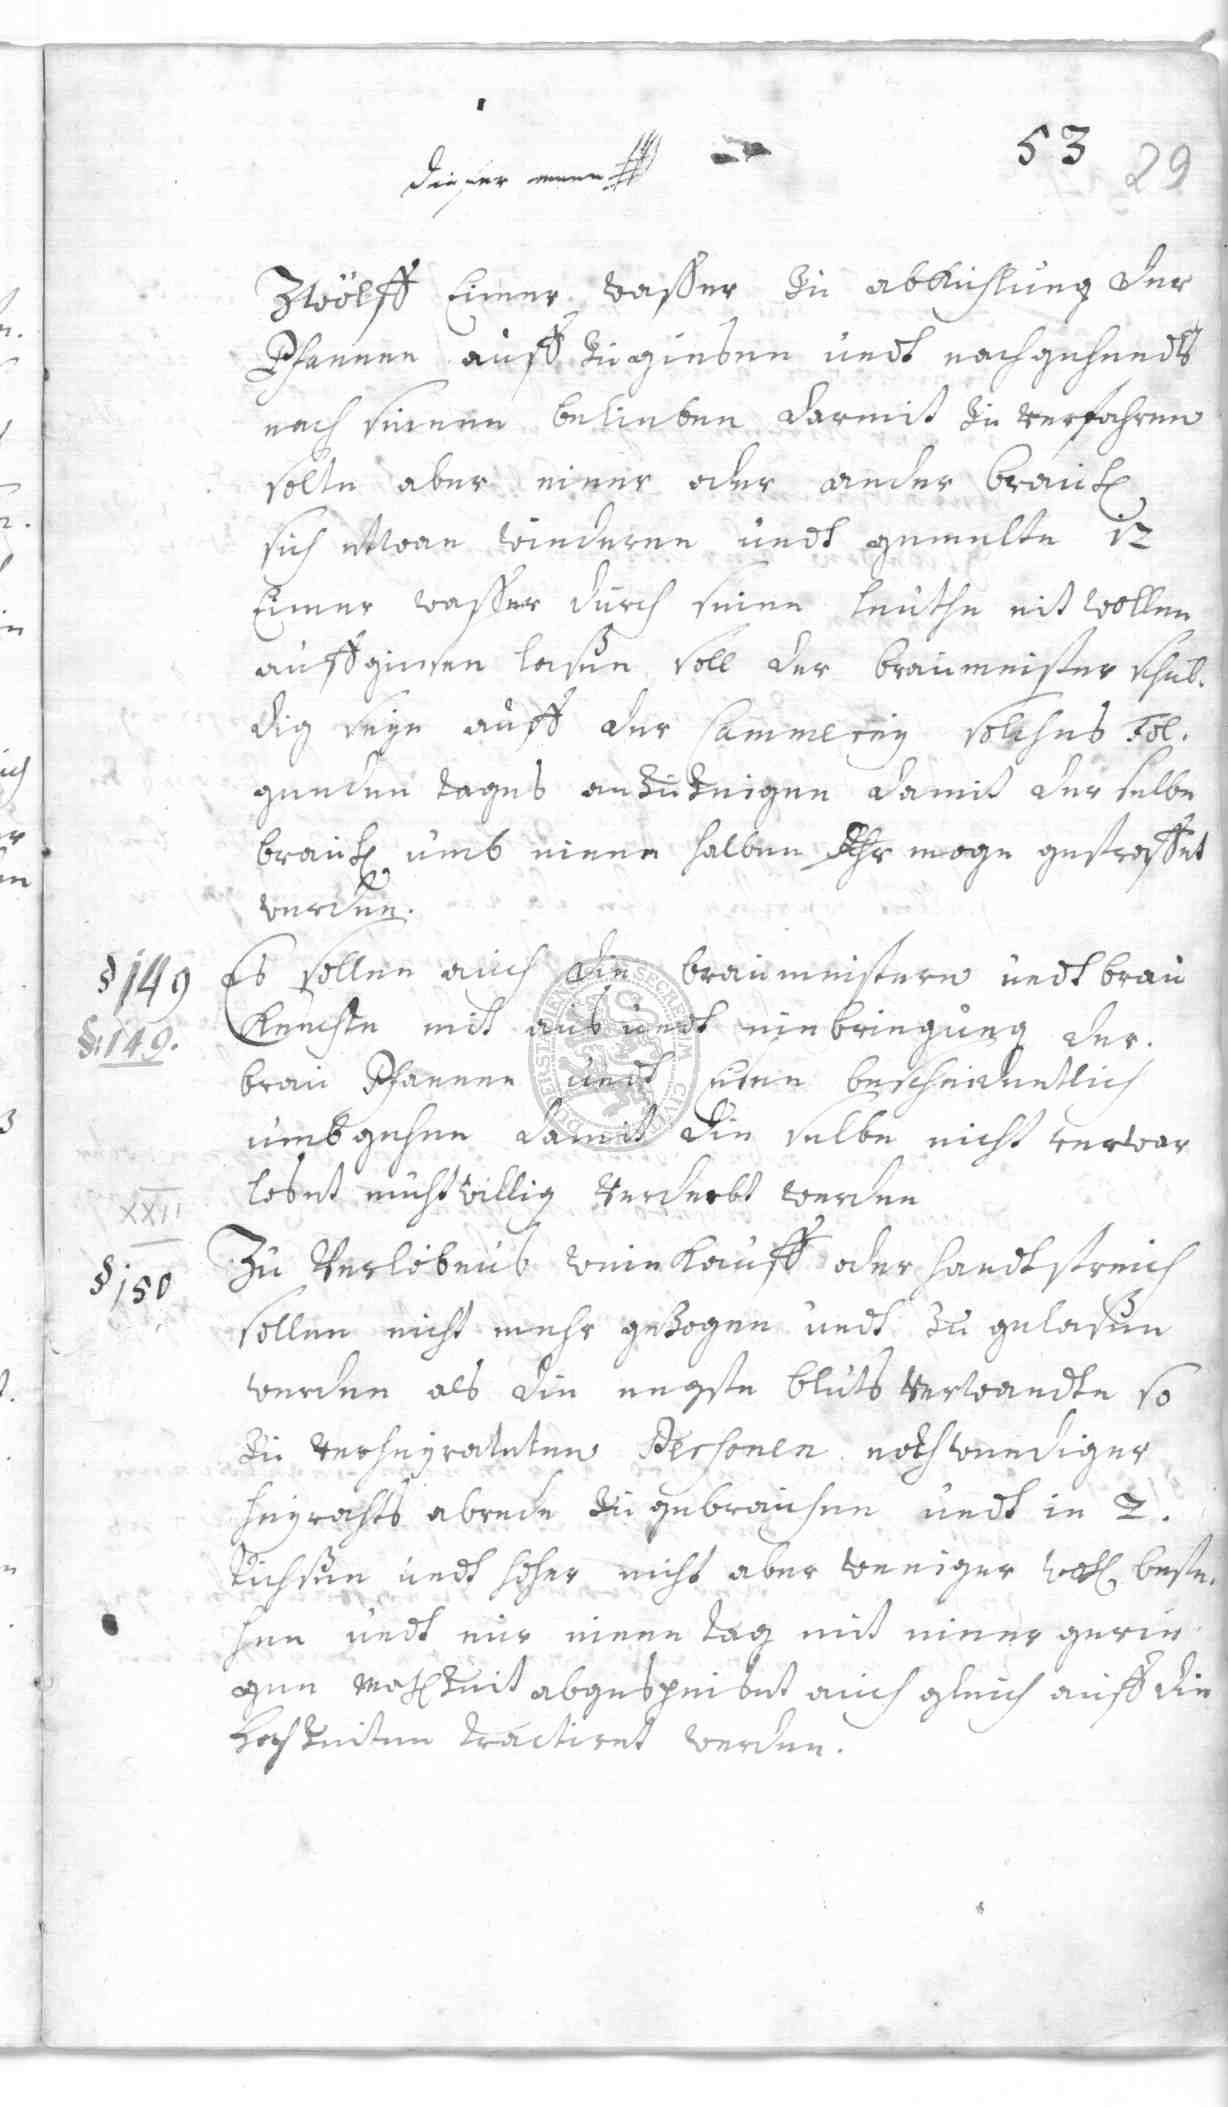 53
29
Zwölff Eimer wasser zu abkühlung der
Pfannen auff zugiesen undt nachgehends
nach seinen belieben darmit zu verfahren
solte aber einer oder ander
sich etwan undt gemelte 12
Eimer wasser durch seine leuthe nit wollen
auffgiesen lasen soll der braumeister schul-
dig seye auff der Cammerey solches fol-
genden tages anzuzeigen damit der selbe
umb einen halben moge gestraffet
werden.
§ 149
§: 149.
Es sollen auch die braumeistern undt brau
Knechte mit aus undt einbringung der
brau Pfannen undt bescheidentlich
umbgehen damit die selbe nicht verwar
loset muhtwillig verderbt werden
XXII
§ 150
Zu Verlöbnus weinkauff oder handtstreich
sollen nicht mehr gezogen undt zu gelasen
werden als die negste bluts Verwandte so
zu verheyrateten Persohnen nothwendiger
heyrahts abrede zugebrauchen undt in 2.
tischen undt höher nicht aber weniger woll beste-
hen undt nur einen tag mit einer gerin
gen mahlzeit abgespeiset auch gleich auff die
hochzeiten tractiret werden.
SECRETVM CIVI